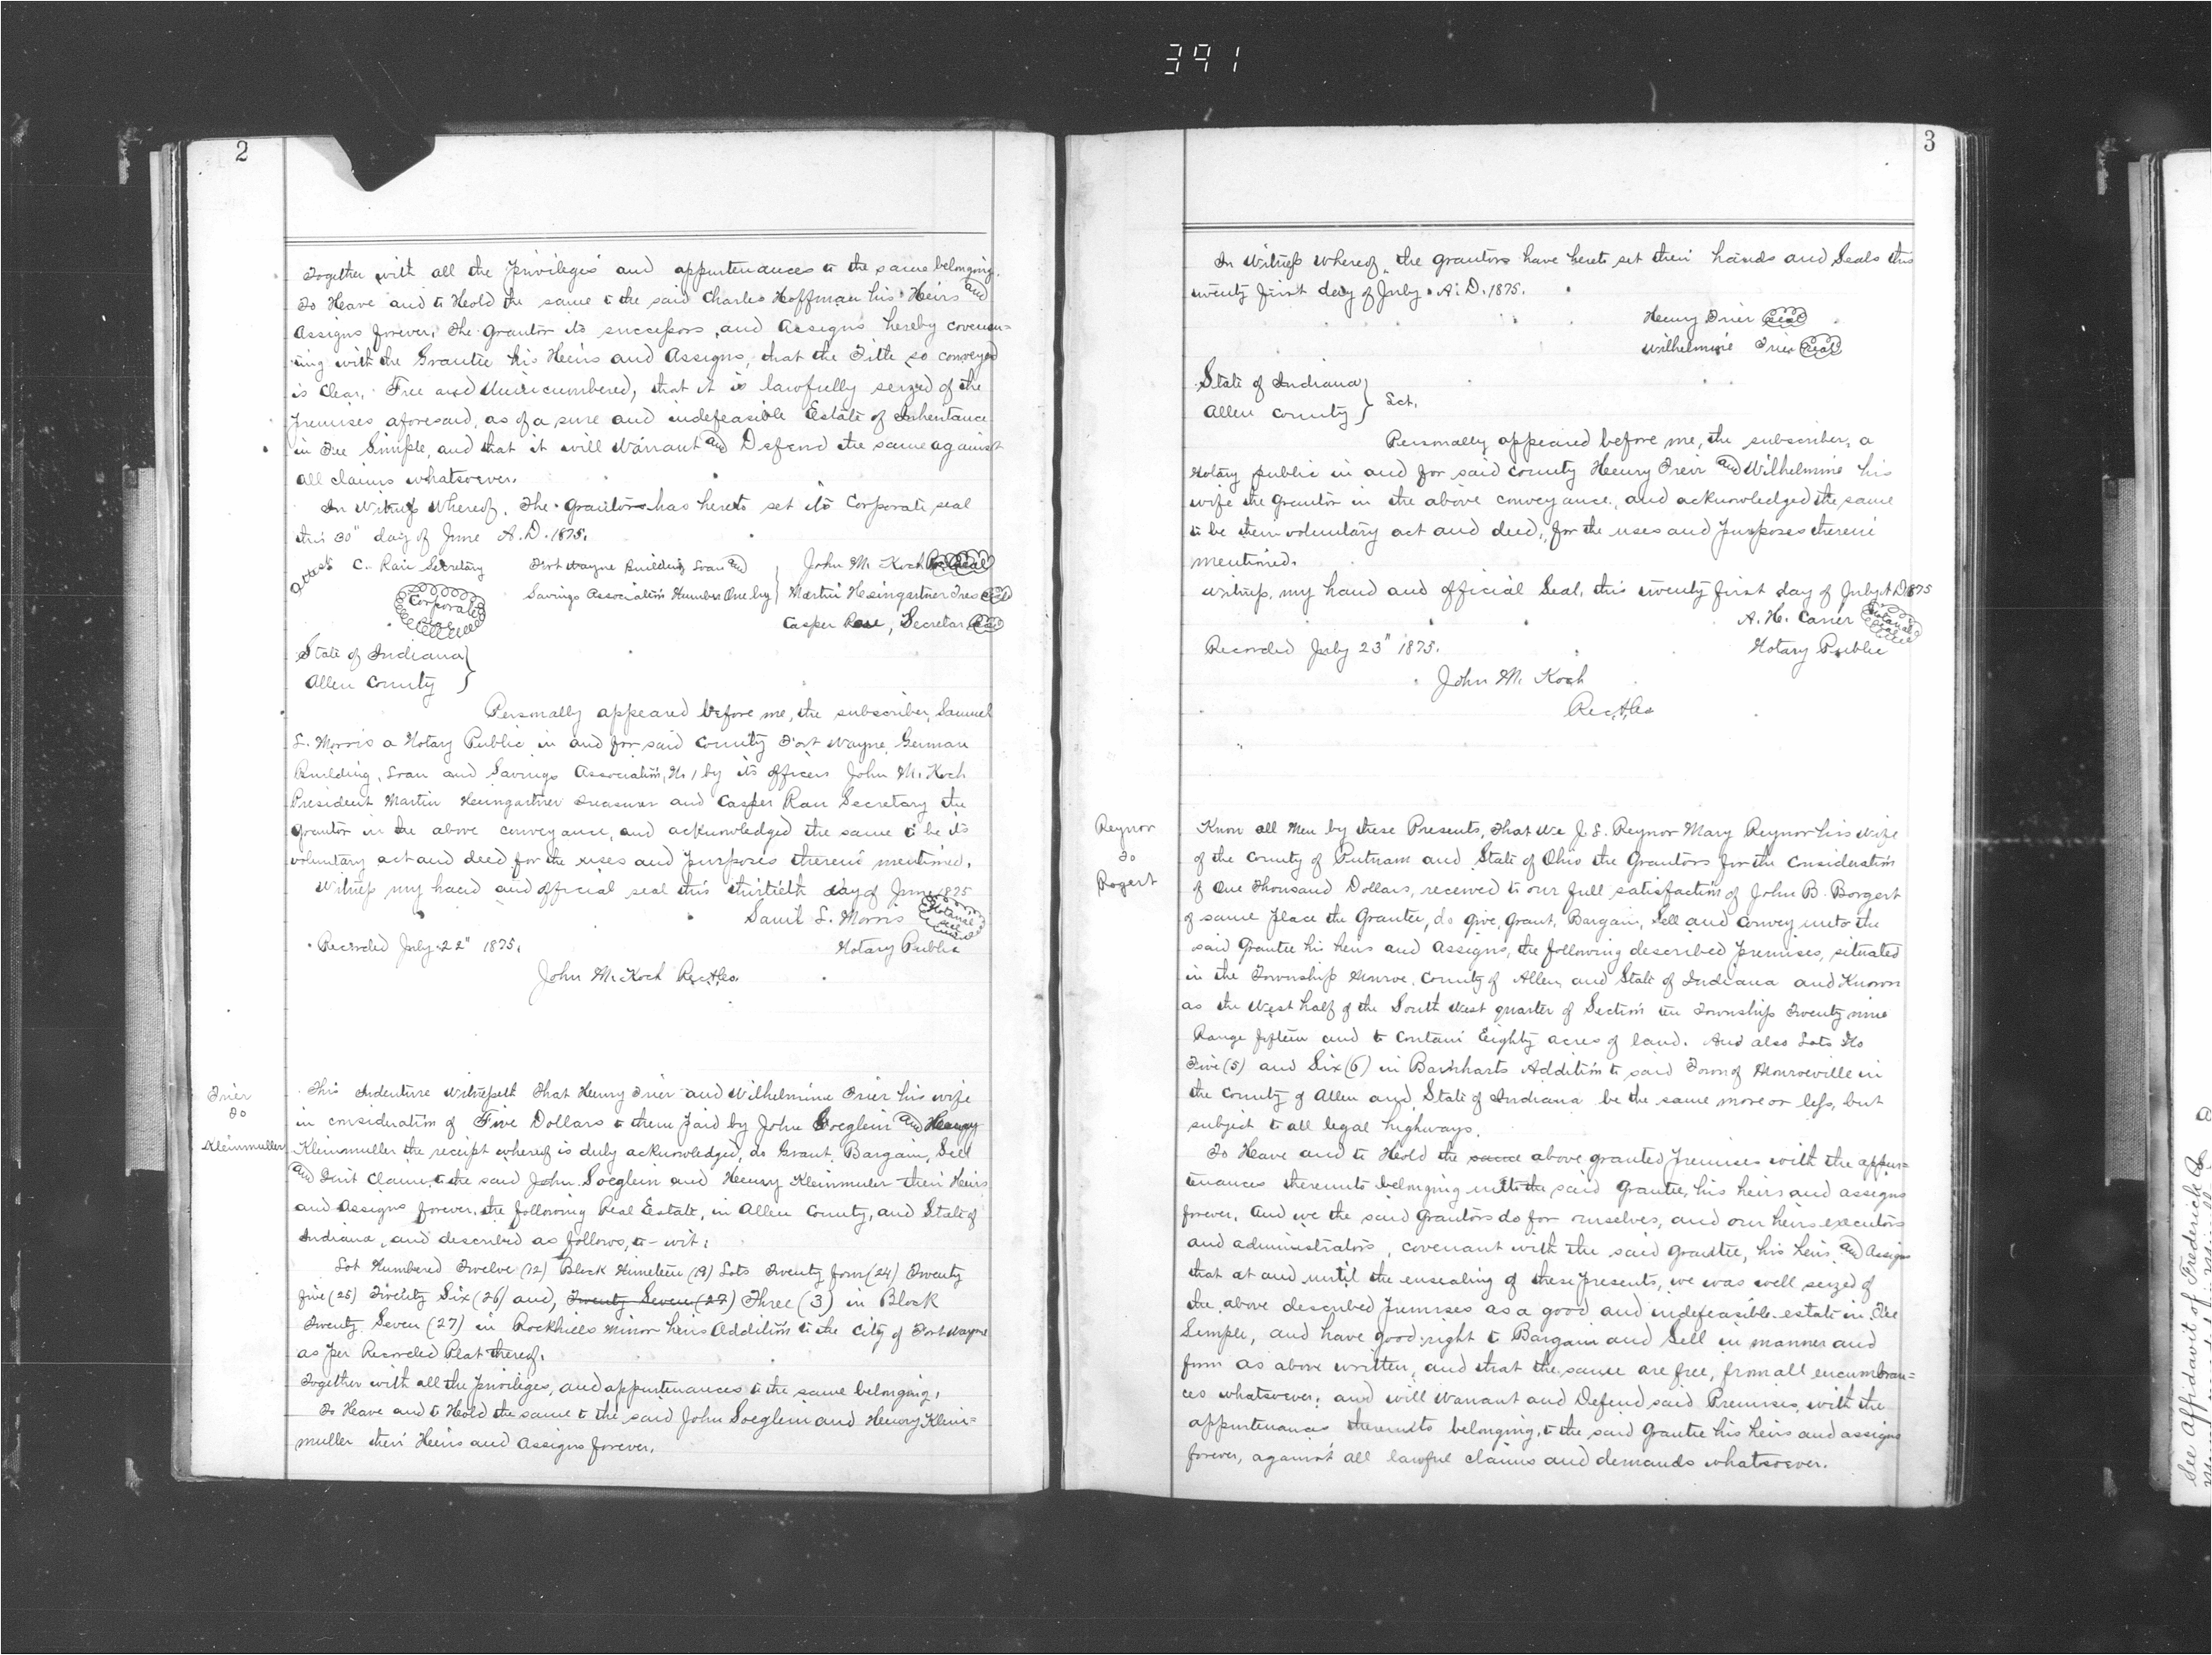 391
2
Together with all the privileges and appurtenances to the same belonging.
To Heave and to Heold the same to the said Charles Hoffman his Heirs and
Assigns forever, The Grantor its successors, and Assigns hereby covenan=
ting with the Grantee his Heirs and Assigns, that the Title so conveyed
is Clear, Free and Unencumbered, that it is lawfully seized of the
Premises aforesaid, as of a sure and indefeasible Estate of Inheritance
in Fee Simple, and that it will Warrant and Defend the same against
all claims whatsoever.
In Witness Whereof, The Grantors has hereto set its Corporate seal
this 30" day of June A.D. 1875.
Attest C. Rau Secretary Fort Wayne Building Loan and John M. Koch Pres Seal
Corporate Seal Savings Association Number One by Martin Heingartner Tres Seal
Casper Rau, Secretar Seal
State of Indiana
Allen County
Personally appeared before me, the subscriber, Samuel
L. Morris a Notary Public in and for said County Fort Wayne German
Building, Loan and Savings Association, No 1 by its officers John M. Koch
President Martin Heingartner Treasurer and Casper Rau Secretary the
Grantor in the above conveyance, and acknowledged the same to be its
voluntary act and deed for the uses and purposes therein mentioned.
Witness my hand and official seal this thirtieth day of June 1875
Saml L. Morris Notarial Seal
Recorded July 22" 1875. Notary Public
John M. Koch Rec. A. Co.
Trier
To
Kleinmuller
This Indenture Witnesseth That Henry Trier and Wilhelmine Trier his wife
in consideration of Five Dollars to them paid by John Soeglein and Henry
Kleinmuller the receipt whereof is duly acknowledged, do Grant, Bargain, Sell
and Quit Claim, to the said John Soeglein and Henry Kleinmuler their Heirs
and Assigns forever, the following Real Estate, in Allen County, and State of
Indiana, and described as follows, to-wit:
Lot Numbered Twelve (12) Block Nineteen (19) Lots Twenty four (24) Twenty
five (25) Twenty Six (26) and, Twenty Seven (27) Three (3) in Block
Twenty Seven (27) in Rockhills Minor heirs Addition to the City of Fort Wayne
as per Recorded Plat thereof.
Together with all the Privileges, and appurtenances to the same belonging,
To Heave and to Heold the same to the said John Soeglein and Henry Klein=
muller their Heirs and Assigns forever.
3
In Witness Whereof, the grantors have hereto set their hands and Seals this
twenty first day of July A.D. 1875.
Henry Trier Seal
Wilhelmine Trier Seal
State of Indiana
Allen County Sct.
Personally appeared before me, the subscriber, a
Notary public in and for said County Henry Treir and Wilhelmine his
wife the Grantor in the above conveyance, and acknowledged the same
to be their voluntary act and deed, for the uses and purposes therein
mentioned.
Witness, my hand and official Seal, this twenty first day of July A.D. 1875
A. H. Carier Notarial Seal
Recorded July 23" 1875. Notary Public
John M. Koch
Rec. A. Co
Reynor
To
Rogert
Know all Men by these Presents, That We J. S. Reynor Mary Reynor his Wife
of the County of Putnam and State of Ohio the Grantors for the Consideration
of One Thousand Dollars, received to our full satisfaction of John B. Borgert
of same place the Grantee, do Give, Grant, Bargain, Sell and Convey unto the
said Grantee his heirs and Assigns, the following described Premises, situated
in the Township Monroe, County of Allen, and State of Indiana and Known
as the West half of the South West quarter of Section ten Township Twenty nine
Range fifteen and to contain Eighty acres of land. And also Lots No
Five (5) and Six (6) in Barnharts Addition to said Town of Monroeville in
the County of Allen and State of Indiana be the same more or less, but
subject to all legal highways.
To Heave and to Heold the same above granted premises with the appur=
tenances thereunto belonging unto the said Grantee, his heirs and assigns
forever, And we the said Grantors do for ourselves, and our heirs executors
and administrators, covenant with the said Grantee, his heirs and Assigns
that at and until the ensealing of these presents, we was well seized of
the above described premises as a good and indefeasible estate in Fee
Simple, and have good right to Bargain and Sell in manner and
form as above written, and that the same are free, from all encumbran=
ces whatsoever, and will Warrant and Defend said Premises, with the
appurtenances thereunto belonging, to the said Grantee his heirs and assigns
forever, against all lawful claims and demands whatsoever.
See Affidavit of Frederick